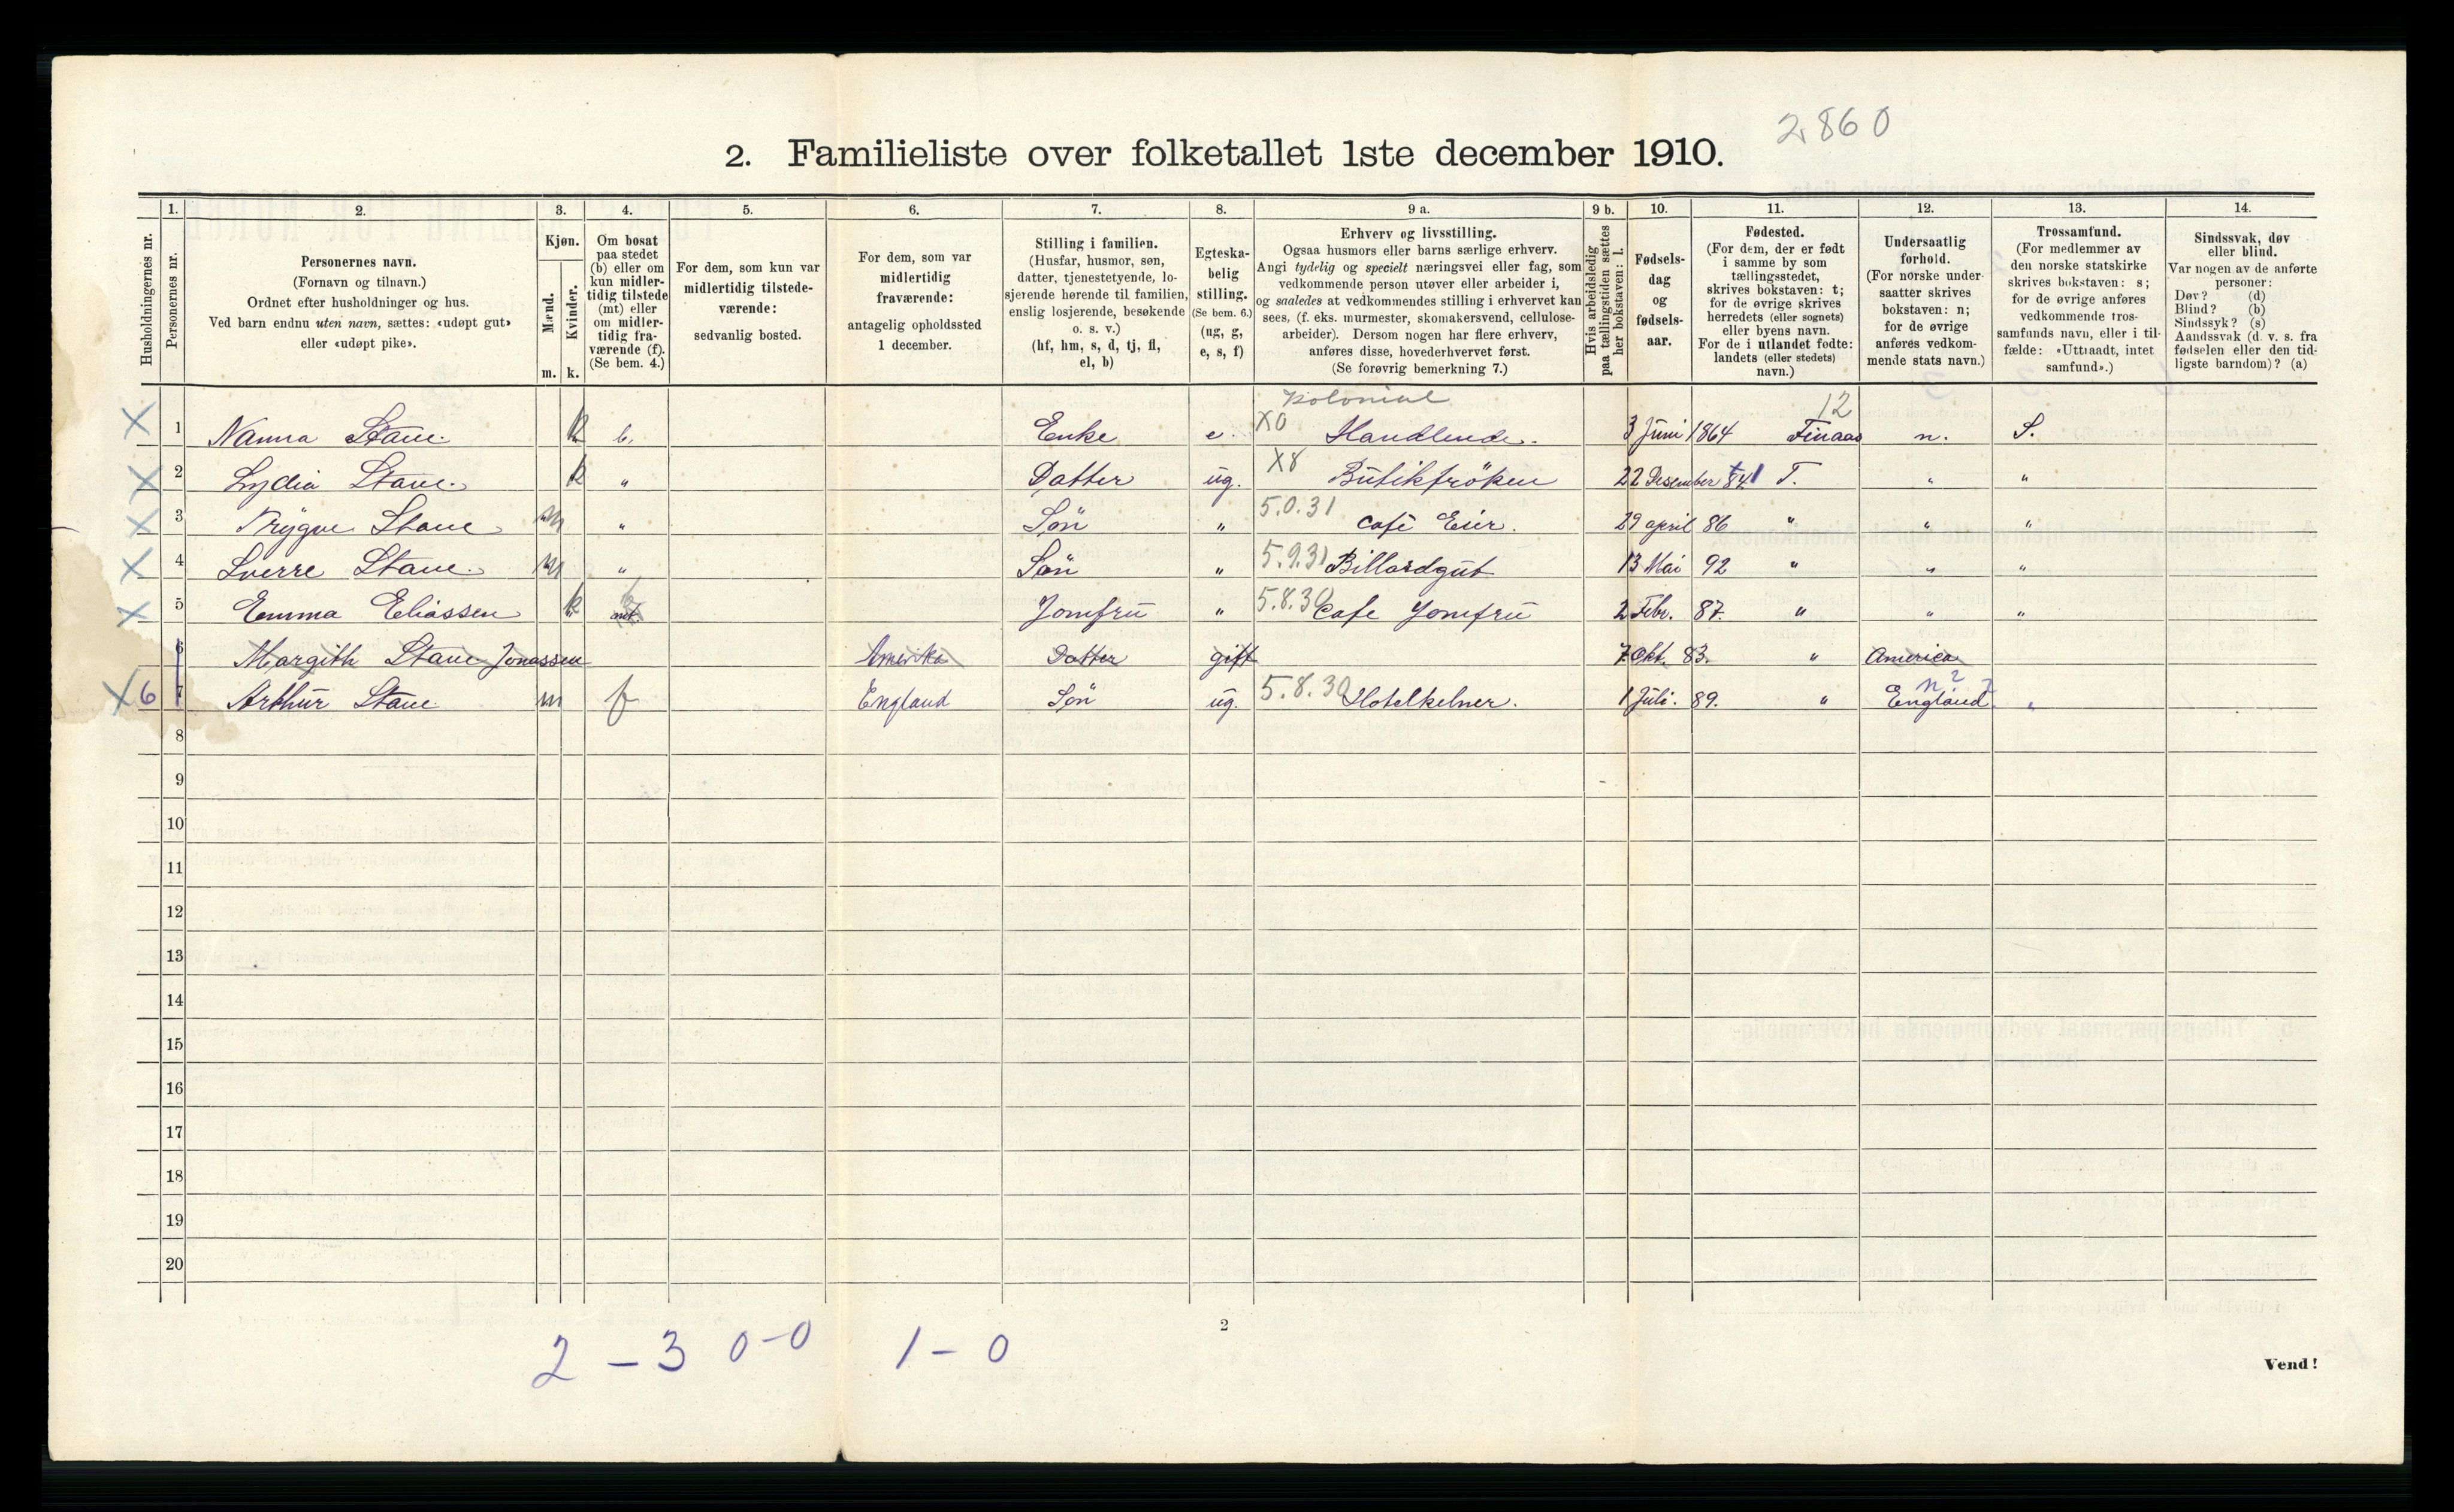 2860
2. Familieliste over folketallet 1ste december 1910.
Husholdningernes nr.
1. Personernes nr.
2. Personernes navn. (Fornavn og tilnavn.) Ordnet efter husholdninger og hus. Ved barn endnu uten navn, sættes: «udøpt gut» eller «udøpt pike».
3. Kjøn. Mænd. m. Kvinder. k.
4. Om bosat paa stedet (b) eller om kun midlertidig tilstede (mt) eller om midlertidig fraværende (f). (Se bem. 4.)
5. For dem, som kun var midlertidig tilstedeværende: sedvanlig bosted.
6. For dem, som var midlertidig fraværende: antagelig opholdssted 1 december.
7. Stilling i familien. (Husfar, husmor, søn, datter, tjenestetyende, losjerende hørende til familien, enslig losjerende, besøkende o. s. v.) (hf, hm, s, d, tj, fl, el, b)
8. Egteskabelig stilling. (Se bem. 6.) (ug, g, e, s, f)
9 a. Erhverv og livsstilling. Ogsaa husmors eller barns særlige erhverv. Angi tydelig og specielt næringsvei eller fag, som vedkommende person utøver eller arbeider i, og saaledes at vedkommendes stilling i erhvervet kan sees, (f. eks. murmester, skomakersvend, cellulosearbeider). Dersom nogen har flere erhverv, anføres disse, hovederhvervet først. (Se forøvrig bemerkning 7.)
9 b. Hvis arbeidsledig paa tællingstiden sættes her bokstaven: l.
10. Fødselsdag og fødselsaar.
11. Fødested. (For dem, der er født i samme by som tællingsstedet, skrives bokstaven: t; for de øvrige skrives herredets (eller sognets) eller byens navn. For de i utlandet fødte: landets (eller stedets) navn.)
12. Undersaatlig forhold. (For norske undersaatter skrives bokstaven: n; for de øvrige anføres vedkommende stats navn.)
13. Trossamfund. (For medlemmer av den norske statskirke skrives bokstaven: s; for de øvrige anføres vedkommende trossamfunds navn, eller i tilfælde: «Uttraadt, intet samfund».)
14. Sindssvak, døv eller blind. Var nogen av de anførte personer: Døv? (d) Blind? (b) Sindssyk? (s) Aandssvak (d. v. s. fra fødselen eller den tidligste barndom)? (a)
Kolonial 12
X 1 Nanna Stane. k b. Enke e. X0 Handlende. 3 Juni 1864 Finaas n. S.
X 2 Lydia Stane. k " Datter ug. X8 Butikfröken 22 Desember 84 T. " "
X 3 Trygve Stane m " Sön " 5.0.31 Café Eier. 29 april 86 " " "
X 4 Sverre Stane. m " Sön " 5.9.31 Billardgut 13 Mai 92 " " "
X 5 Emma Eliassen k mt. b Jomfru " 5.8.30 Cafe Jomfru 2 Febr. 87. " " "
6 Margith Stane Jonassen Amerika Datter gift 7 Okt. 83. " America
X 6 7 Arthur Stane m f England Sön ug. 5.8.30 Hotelkelner. 1 Juli. 89. " England n "
8
9
10
11
12
13
14
15
16
17
18
19
20
2 - 3 0-0 1 - 0
2
Vend!